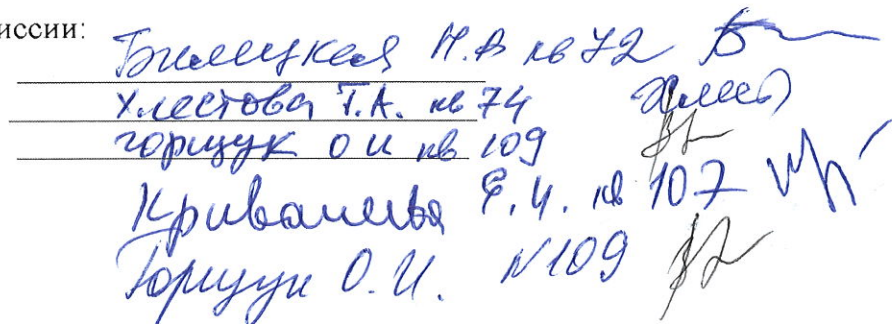 иссии:
Билецкая Н.В кв 72
Хлестова Т.А. кв 74
горщук О И кв 109
Криванцева Е.И. кв 107
Горщук О.И. №109